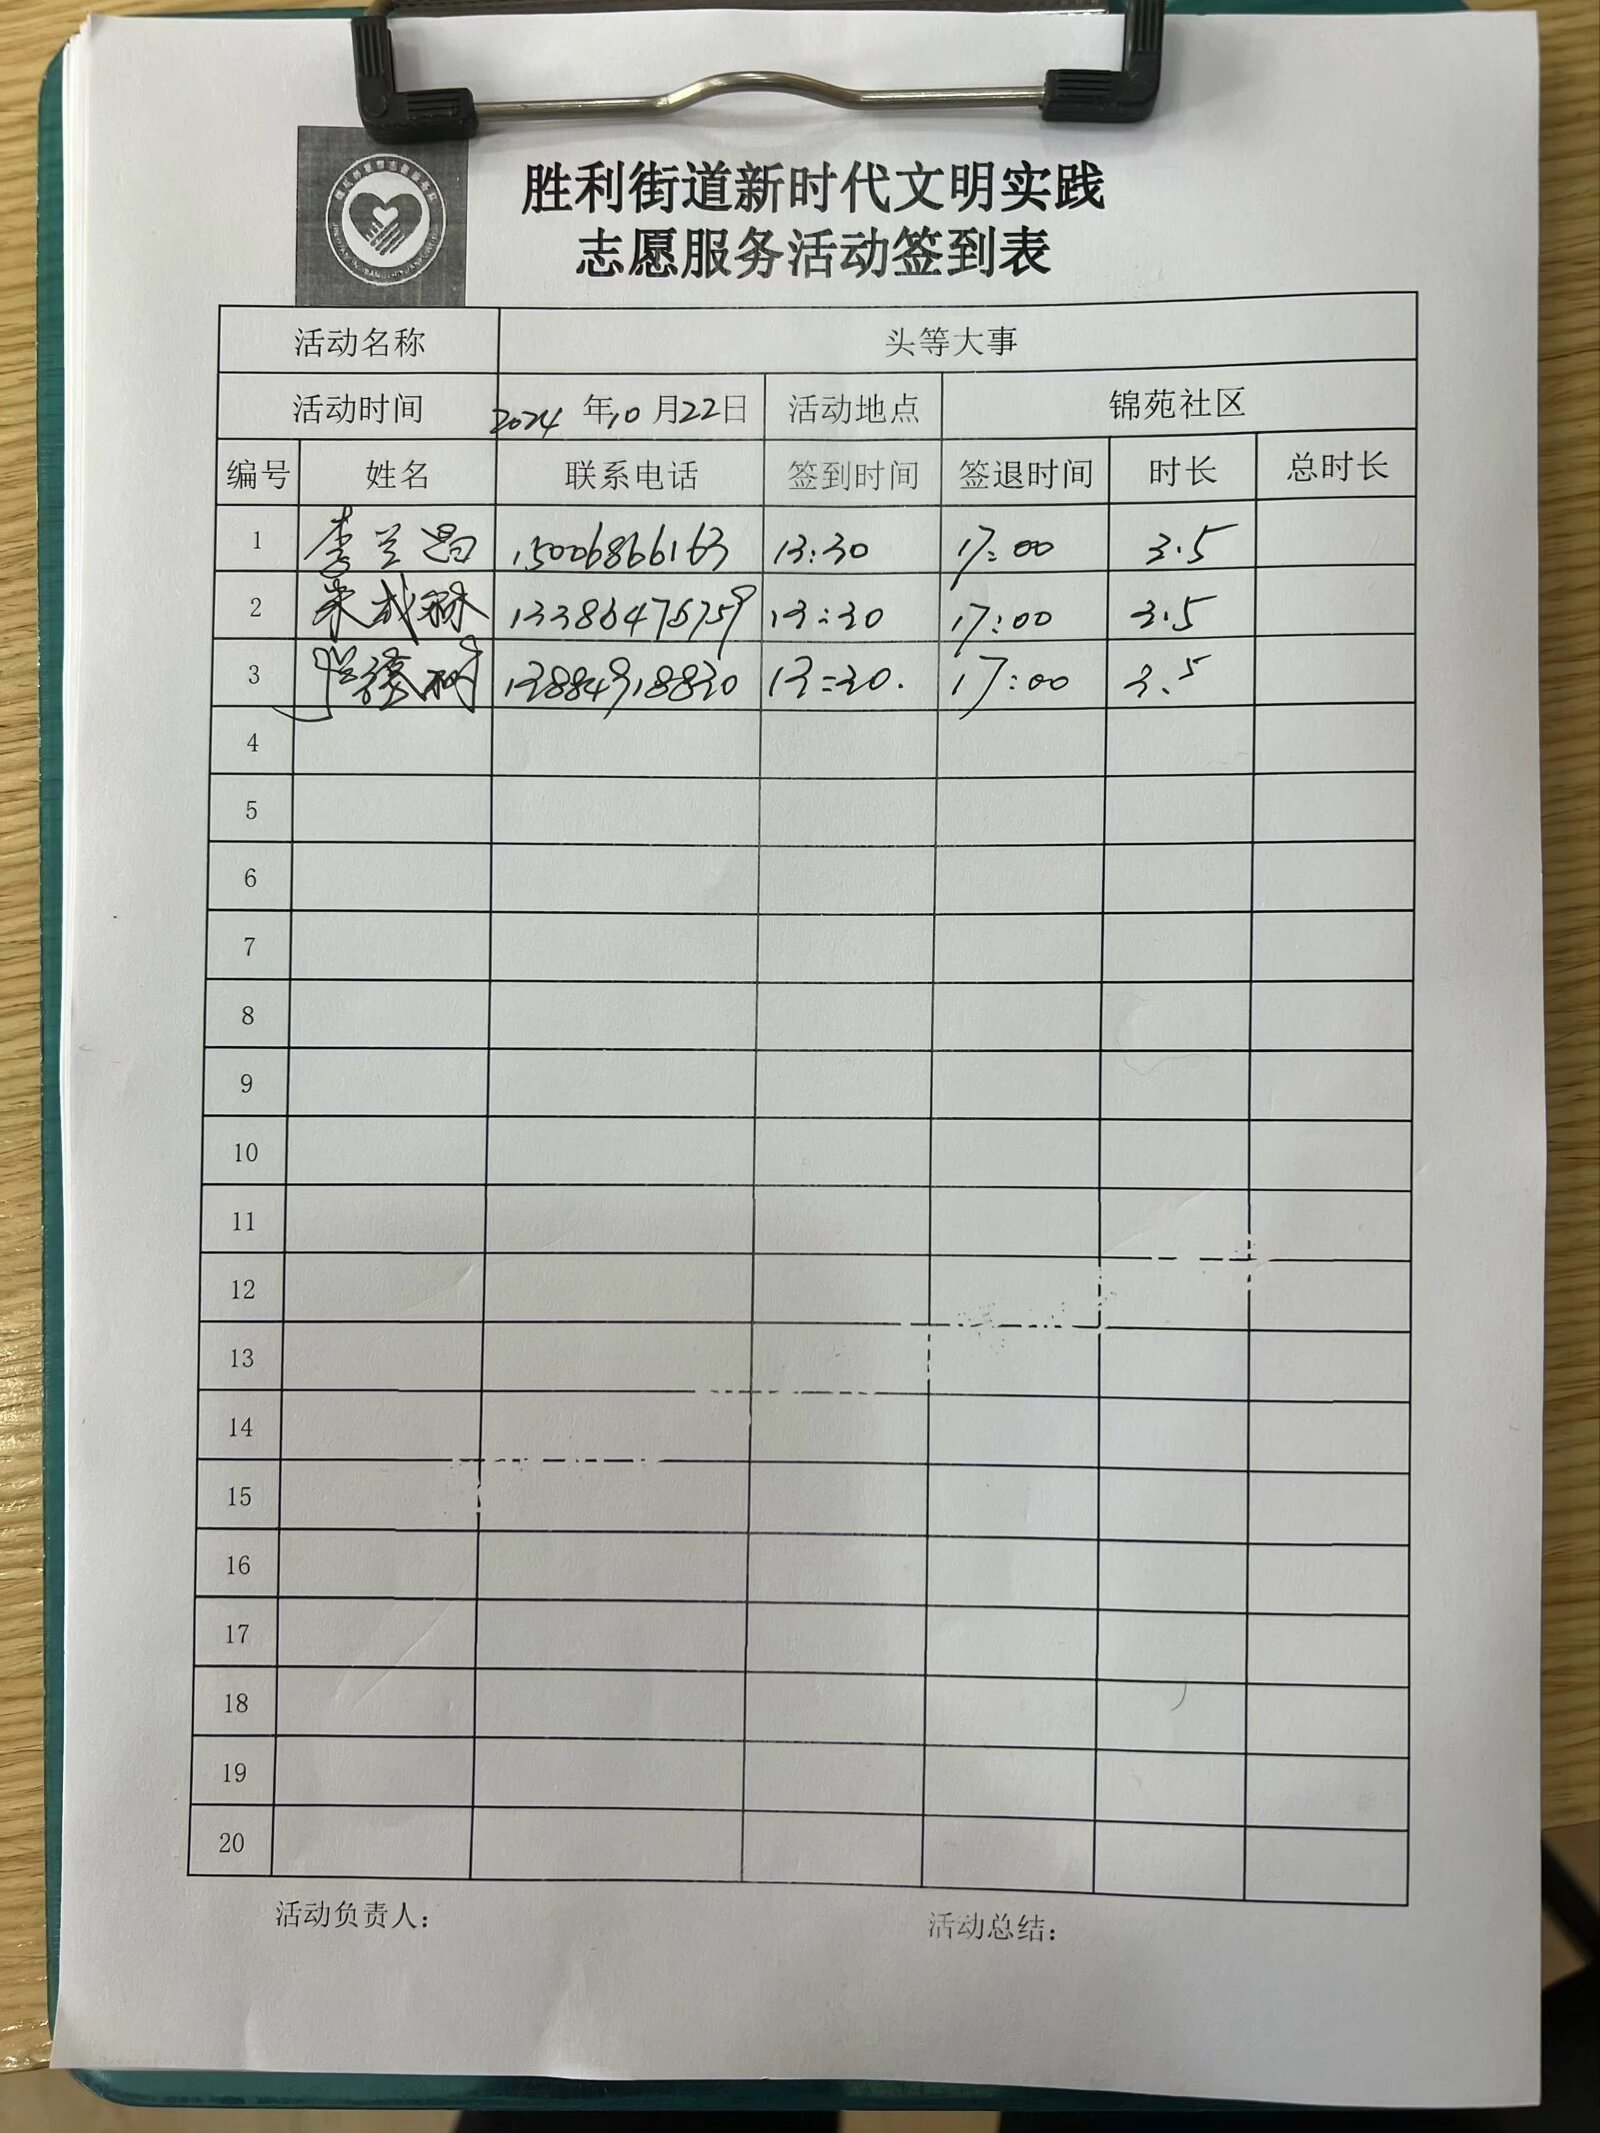 胜利街道新时代文明实践
志愿服务活动签到表
活动名称 头等大事
活动时间 2024年10月22日 活动地点 锦苑社区
编号 姓名 联系电话 签到时间 签退时间 时长 总时长
1 李兰昌 15006866163 13:30 17:00 3.5
2 朱成 13386476759 13:30 17:00 3.5
3 13884918830 13:30. 17:00 3.5
4
5
6
7
8
9
10
11
12
13
14
15
16
17
18
19
20
活动负责人： 活动总结：